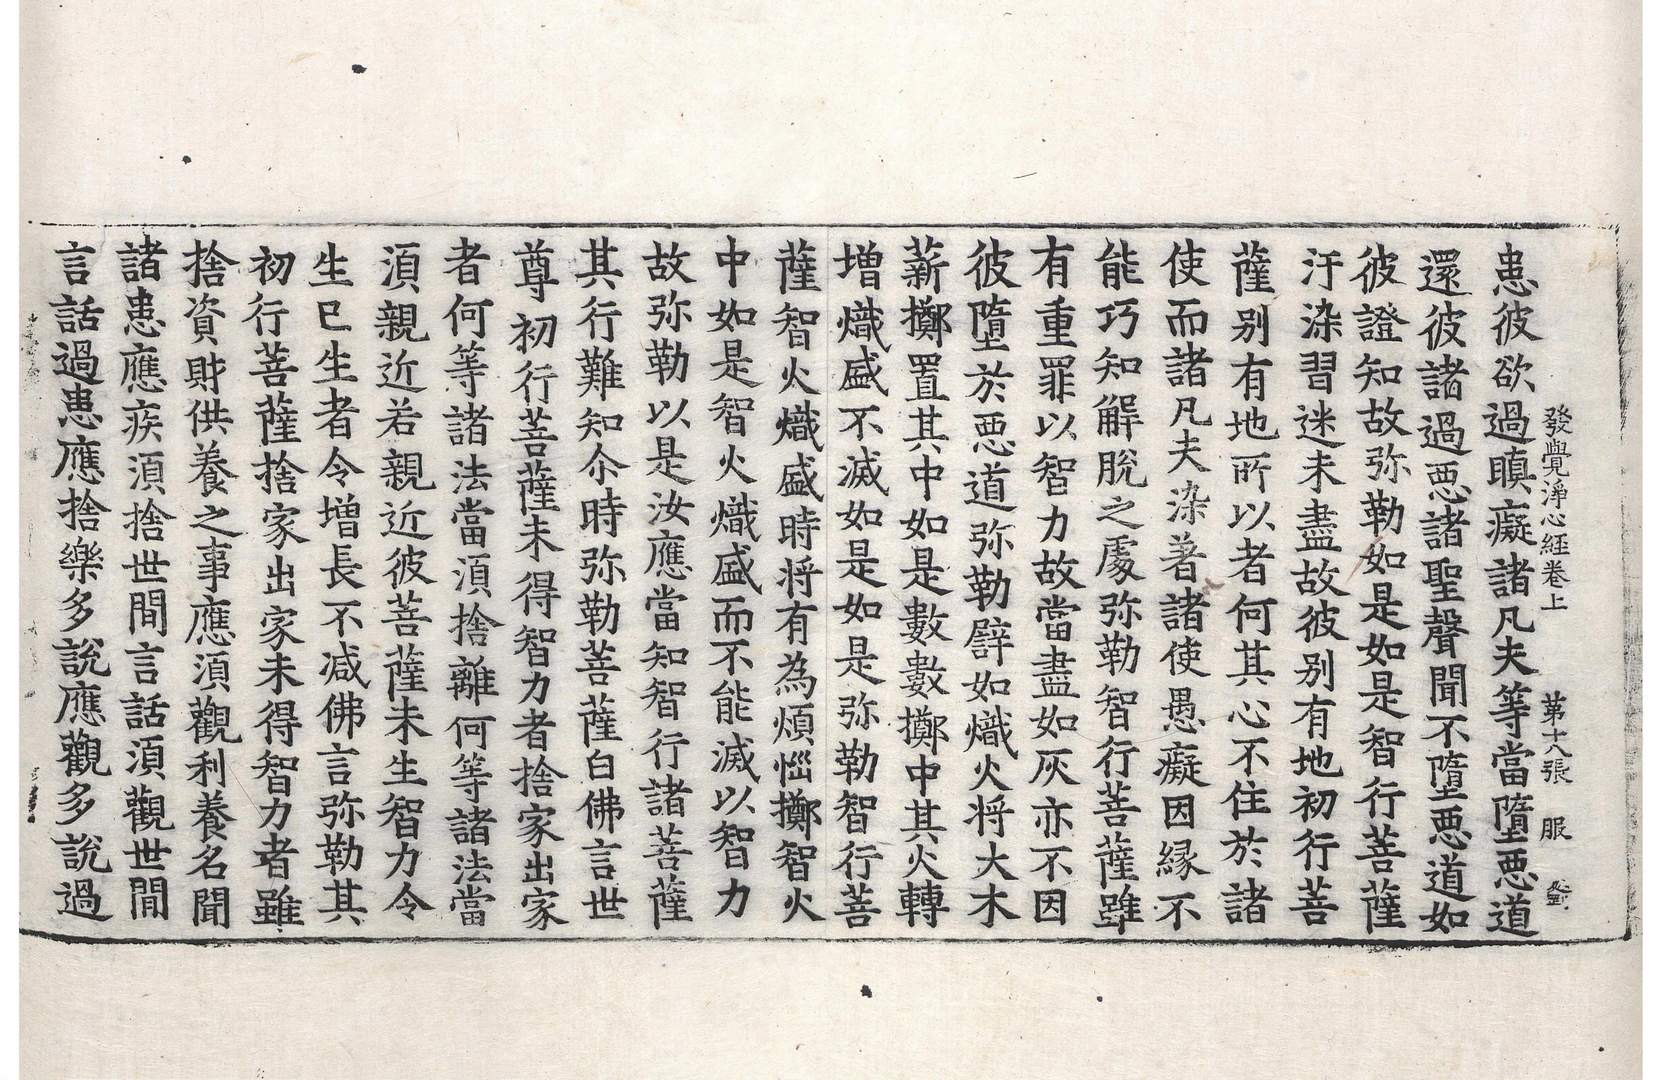 發覺淨心經卷上 第十八張 服
患彼欲過瞋癡諸凡夫等當墮悪道
還彼諸過悪諸聖聲聞不墮悪道如
彼證知故弥勒如是如是智行菩薩
汙染習迷未盡故彼别有地初行菩
薩别有地所以者何其心不住於諸
使而諸凡夫染著諸使愚癡因縁不
能巧知解脫之處弥勒智行菩薩雖
有重罪以智力故當盡如灰亦不因
彼墮於悪道弥勒譬如熾火将大木
薪擲置其中如是數數擲中其火轉
增熾盛不滅如是如是弥勒智行菩
薩智火熾盛時将有為煩惱擲智火
中如是智火熾盛而不能滅以智力
故弥勒以是汝應當知智行諸菩薩
其行難知尒時弥勒菩薩白佛言世
尊初行菩薩未得智力者捨家出家
者何等諸法當湏捨離何等諸法當
湏親近若親近彼菩薩未生智力令
生已生者令增長不减佛言弥勒其
初行菩薩捨家出家未得智力者雖
捨資財供養之事應湏觀利養名聞
諸患應疾湏捨世間言話湏觀世間
言話過患應捨樂多說應觀多說過